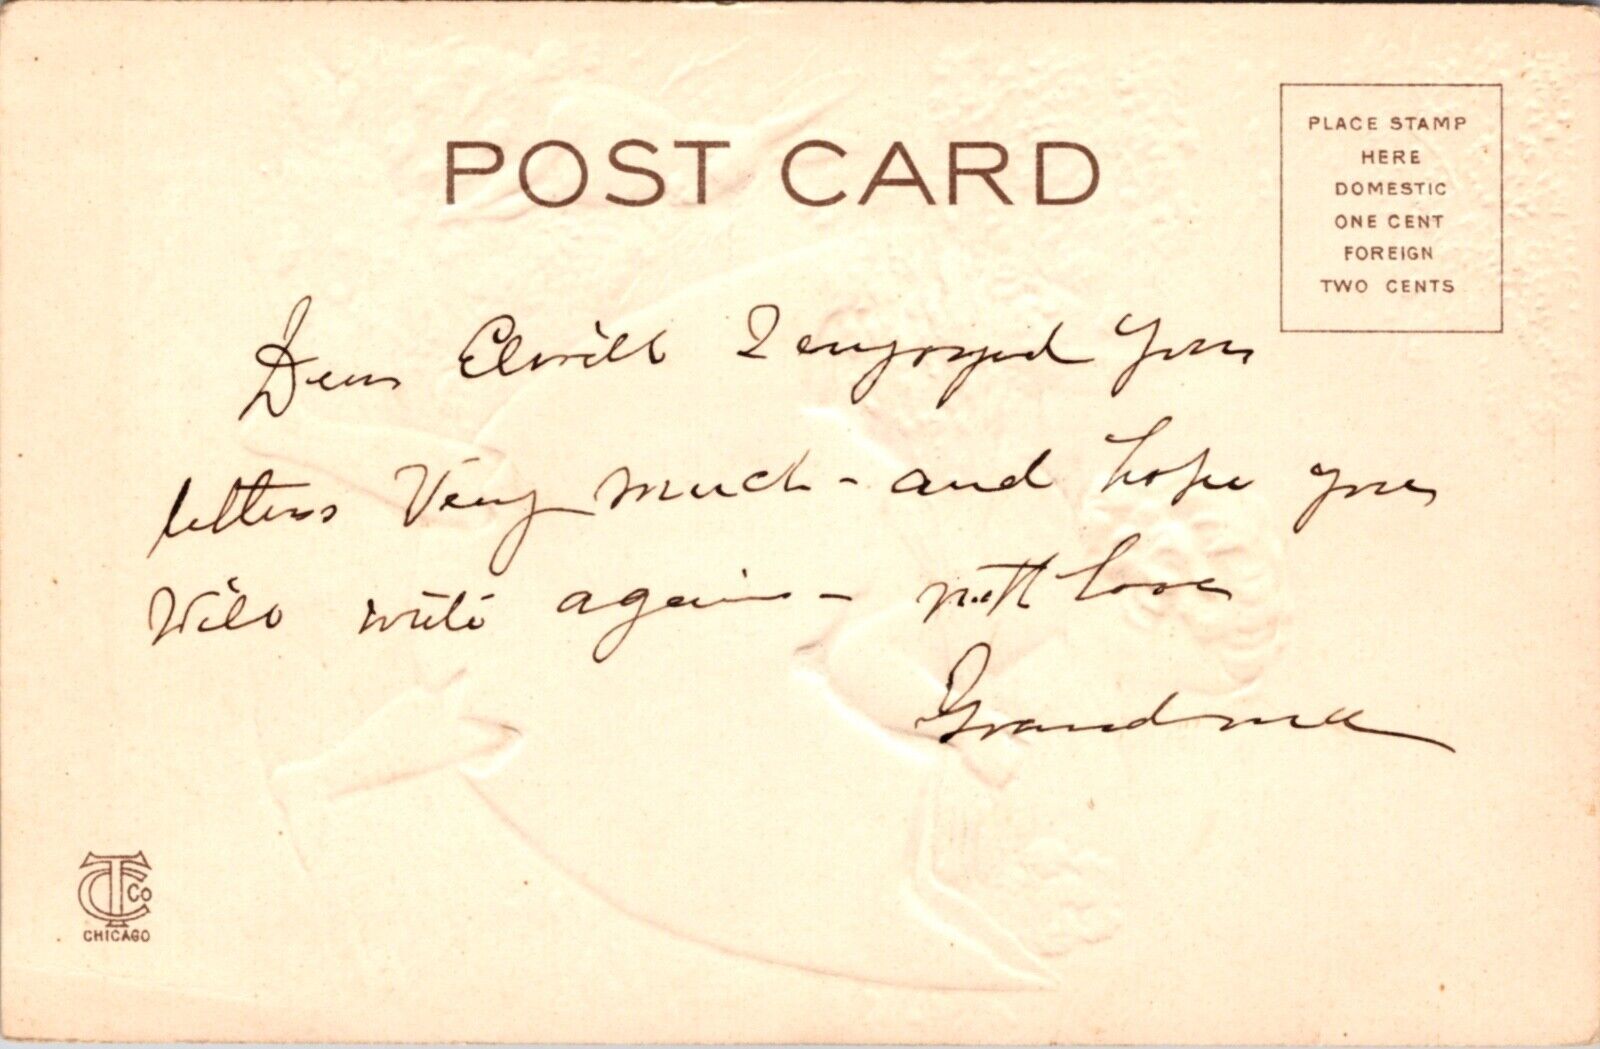 POST CARD
PLACE STAMP
HERE
DOMESTIC
ONE CENT
FOREIGN
TWO CENTS
Dear I enjoyed your
letters Very much - and hope you
Will write again - with love
Grandma
TC Co
CHICAGO